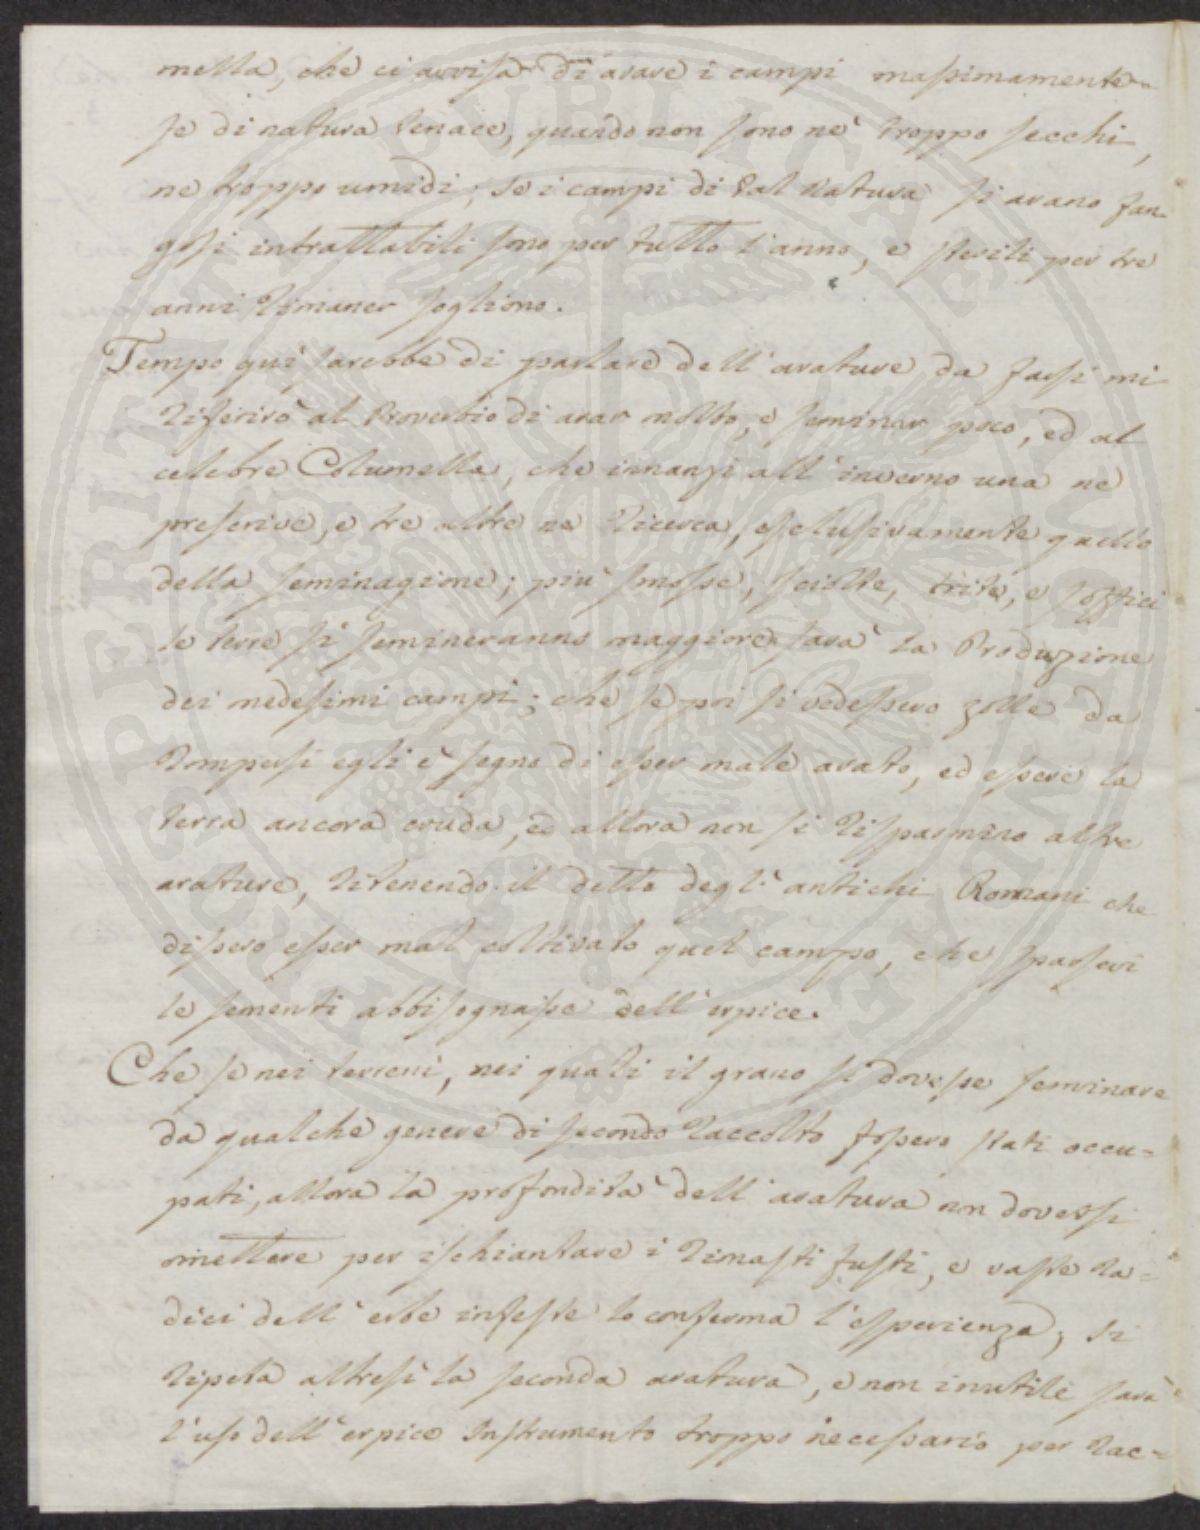 mella, che ci avvisa di arare i campi massimamente
se di natura tenace, quando non sono nè troppo secchi,
ne troppo umidi; se i campi di tal natura si arano fan-
gosi intrattabili sono per tutto l'anno, e sterili per tre
anni rimaner sogliono.
Tempo quì sarebbe di parlare dell'arature da farsi mi
riferirò al Proverbio di arar molto, e seminar poco, ed al
celebre Columella, che innanzi all'inverno una ne
prescrive, e tre altre ne ricerca, esclusivamente quello
della seminagione; più smosse, sciolte, trite, e soffici
le terre si semineranno maggiore sarà la Produzione
dei medesimi campi; che se poi si vedessero zolle da
rompersi egli è segno di esser male arato, ed essere la
terra ancora cruda, ed allora non si risparmino altre
arature, ritenendo il detto degl'antichi Romani che
dissero esser mal coltivato quel campo, che sparsevi
le sementi abbisognasse dell'erpice.
Che se nei terreni, nei quali il grano si dovesse seminare
da qualche genere di secondo raccolto fossero stati occu=
pati, allora la profondità dell'aratura non dovessi
omettere per ischiantare i rimasti fusti, e vaste ra=
dici dell'erbe infeste lo conferma l'esperienza; si
ripeta altresì la seconda aratura, e non inutile sarà
l'uso dell'erpice Instrumento troppo necessario per rac=
SPERITATI PUBLICAE AUGENDAE